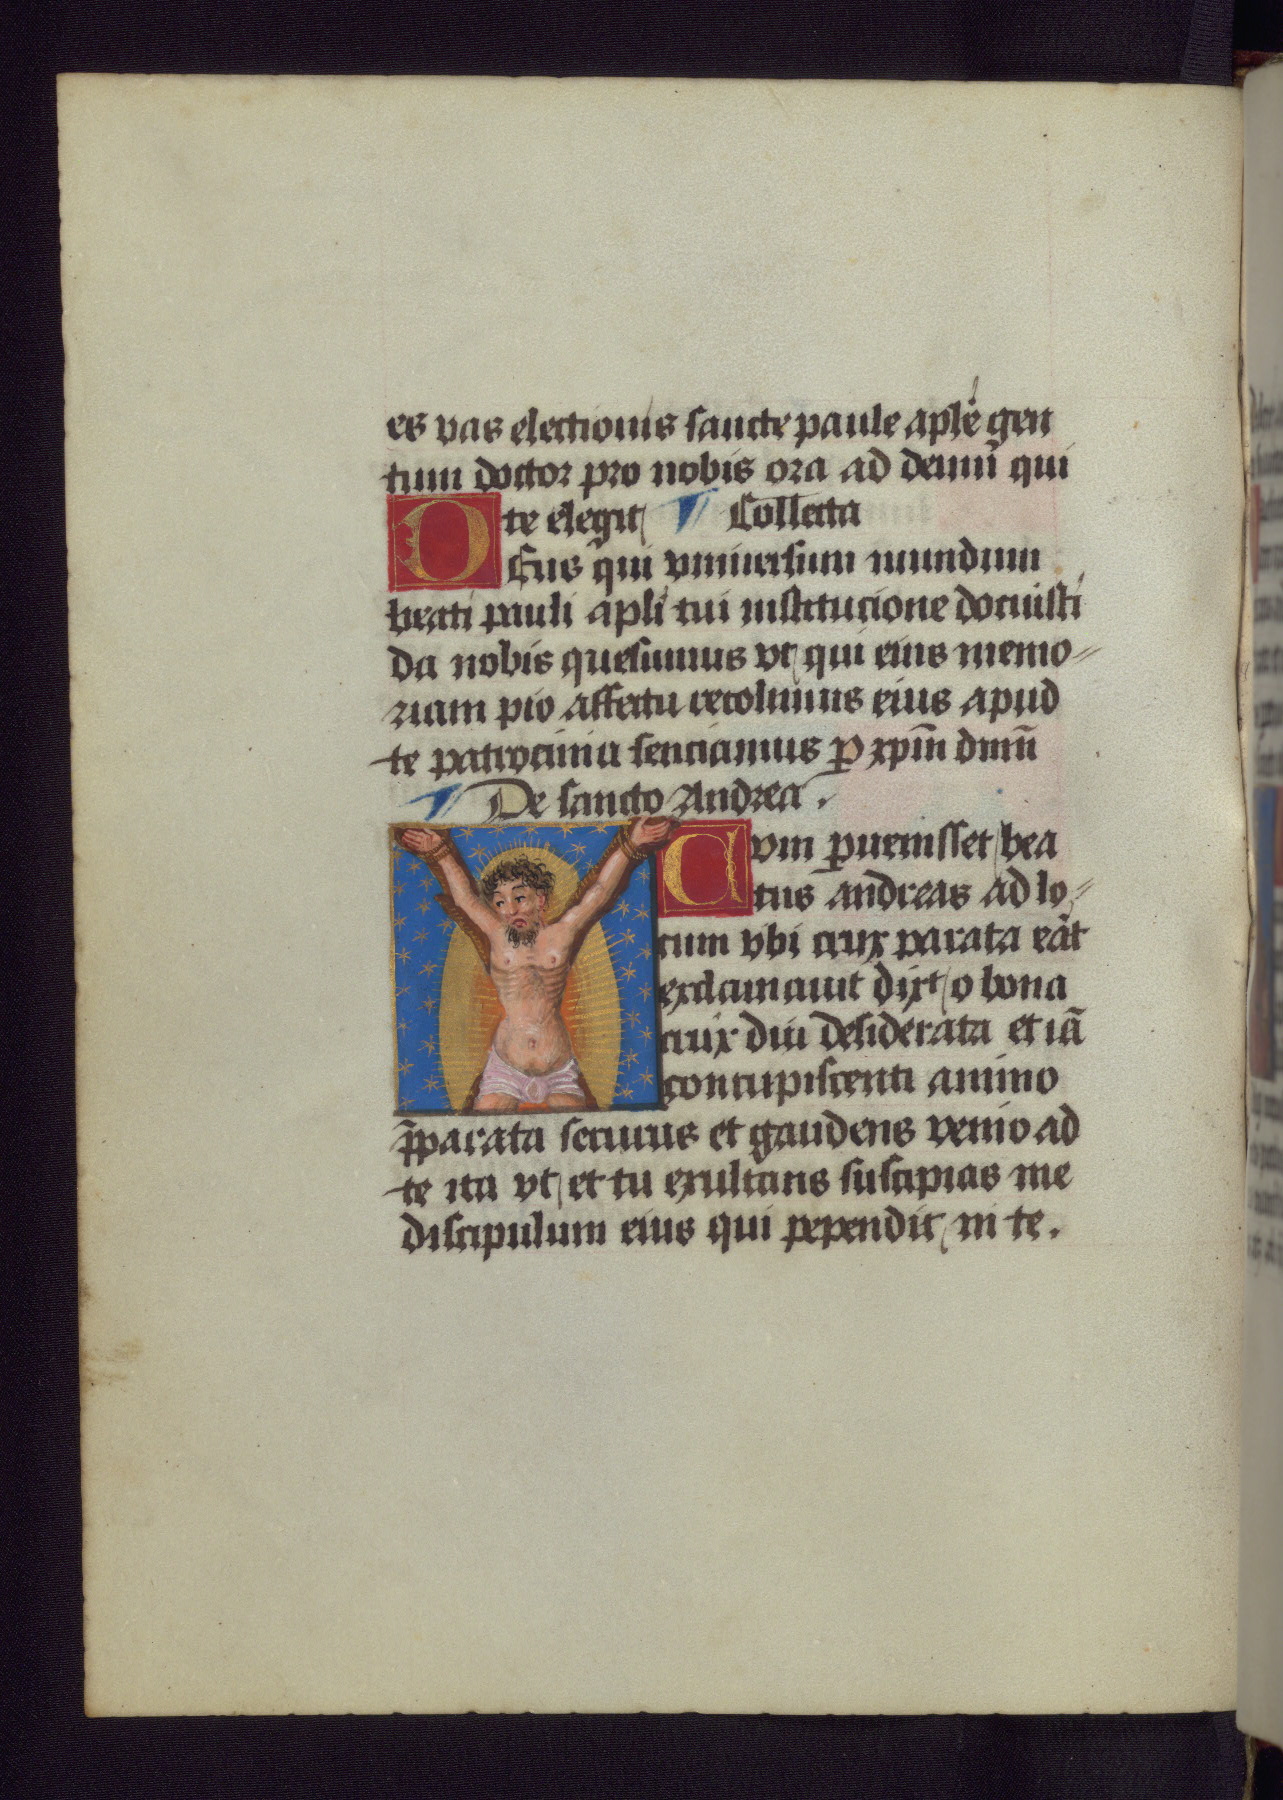 es vas electionis sancte paule aplē gen
tium doctor pro nobis ora ad deum qui
te elegit Collecta
Deus qui vniuersum mundum
beati pauli apli tui institucione docuisti
da nobis quesumus vt qui eius memo-
riam pio affectu recolimus eius apud
te patrocinia senciamus ꝑ xpm̄ dnm̄
De sancto Andrea.
Cum ꝑuenisset bea
tus andreas ad lo-
cum vbi crux parata eāt
exclamauit dixt o bona
crux diu desiderata et iā
concupiscenti animo
p̄parata securus et gaudens venio ad
te ita vt et tu exultans suscipias me
discipulum eius qui pependit in te.